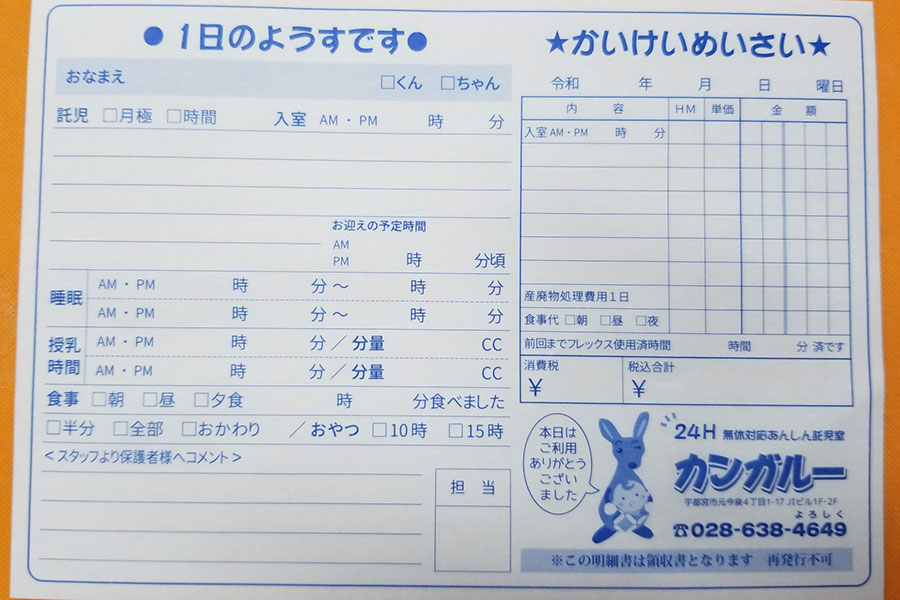 ●1日のようすです●
おなまえ □くん □ちゃん
託児 □月極 □時間 入室 AM・PM 時 分
お迎えの予定時間
AM
PM 時 分頃
睡眠 AM・PM 時 分～ 時 分
AM・PM 時 分～ 時 分
授乳時間 AM・PM 時 分／分量 CC
AM・PM 時 分／分量 CC
食事 □朝 □昼 □夕食 時 分食べました
□半分 □全部 □おかわり ／おやつ □10時 □15時
＜スタッフより保護者様へコメント＞
担 当
★かいけいめいさい★
令和 年 月 日 曜日
内 容 HM 単価 金 額
入室AM・PM 時 分
産廃物処理費用1日
食事代 □朝 □昼 □夜
前回までフレックス使用済時間 時間 分 済です
消費税 税込合計
¥ ¥
本日は
ご利用
ありがとう
ござい
ました
24H 無休対応あんしん託児室
カンガルー
宇都宮市元今泉4丁目1-17 JIビル1F・2F
よろしく
☎028-638-4649
※この明細書は領収書となります 再発行不可